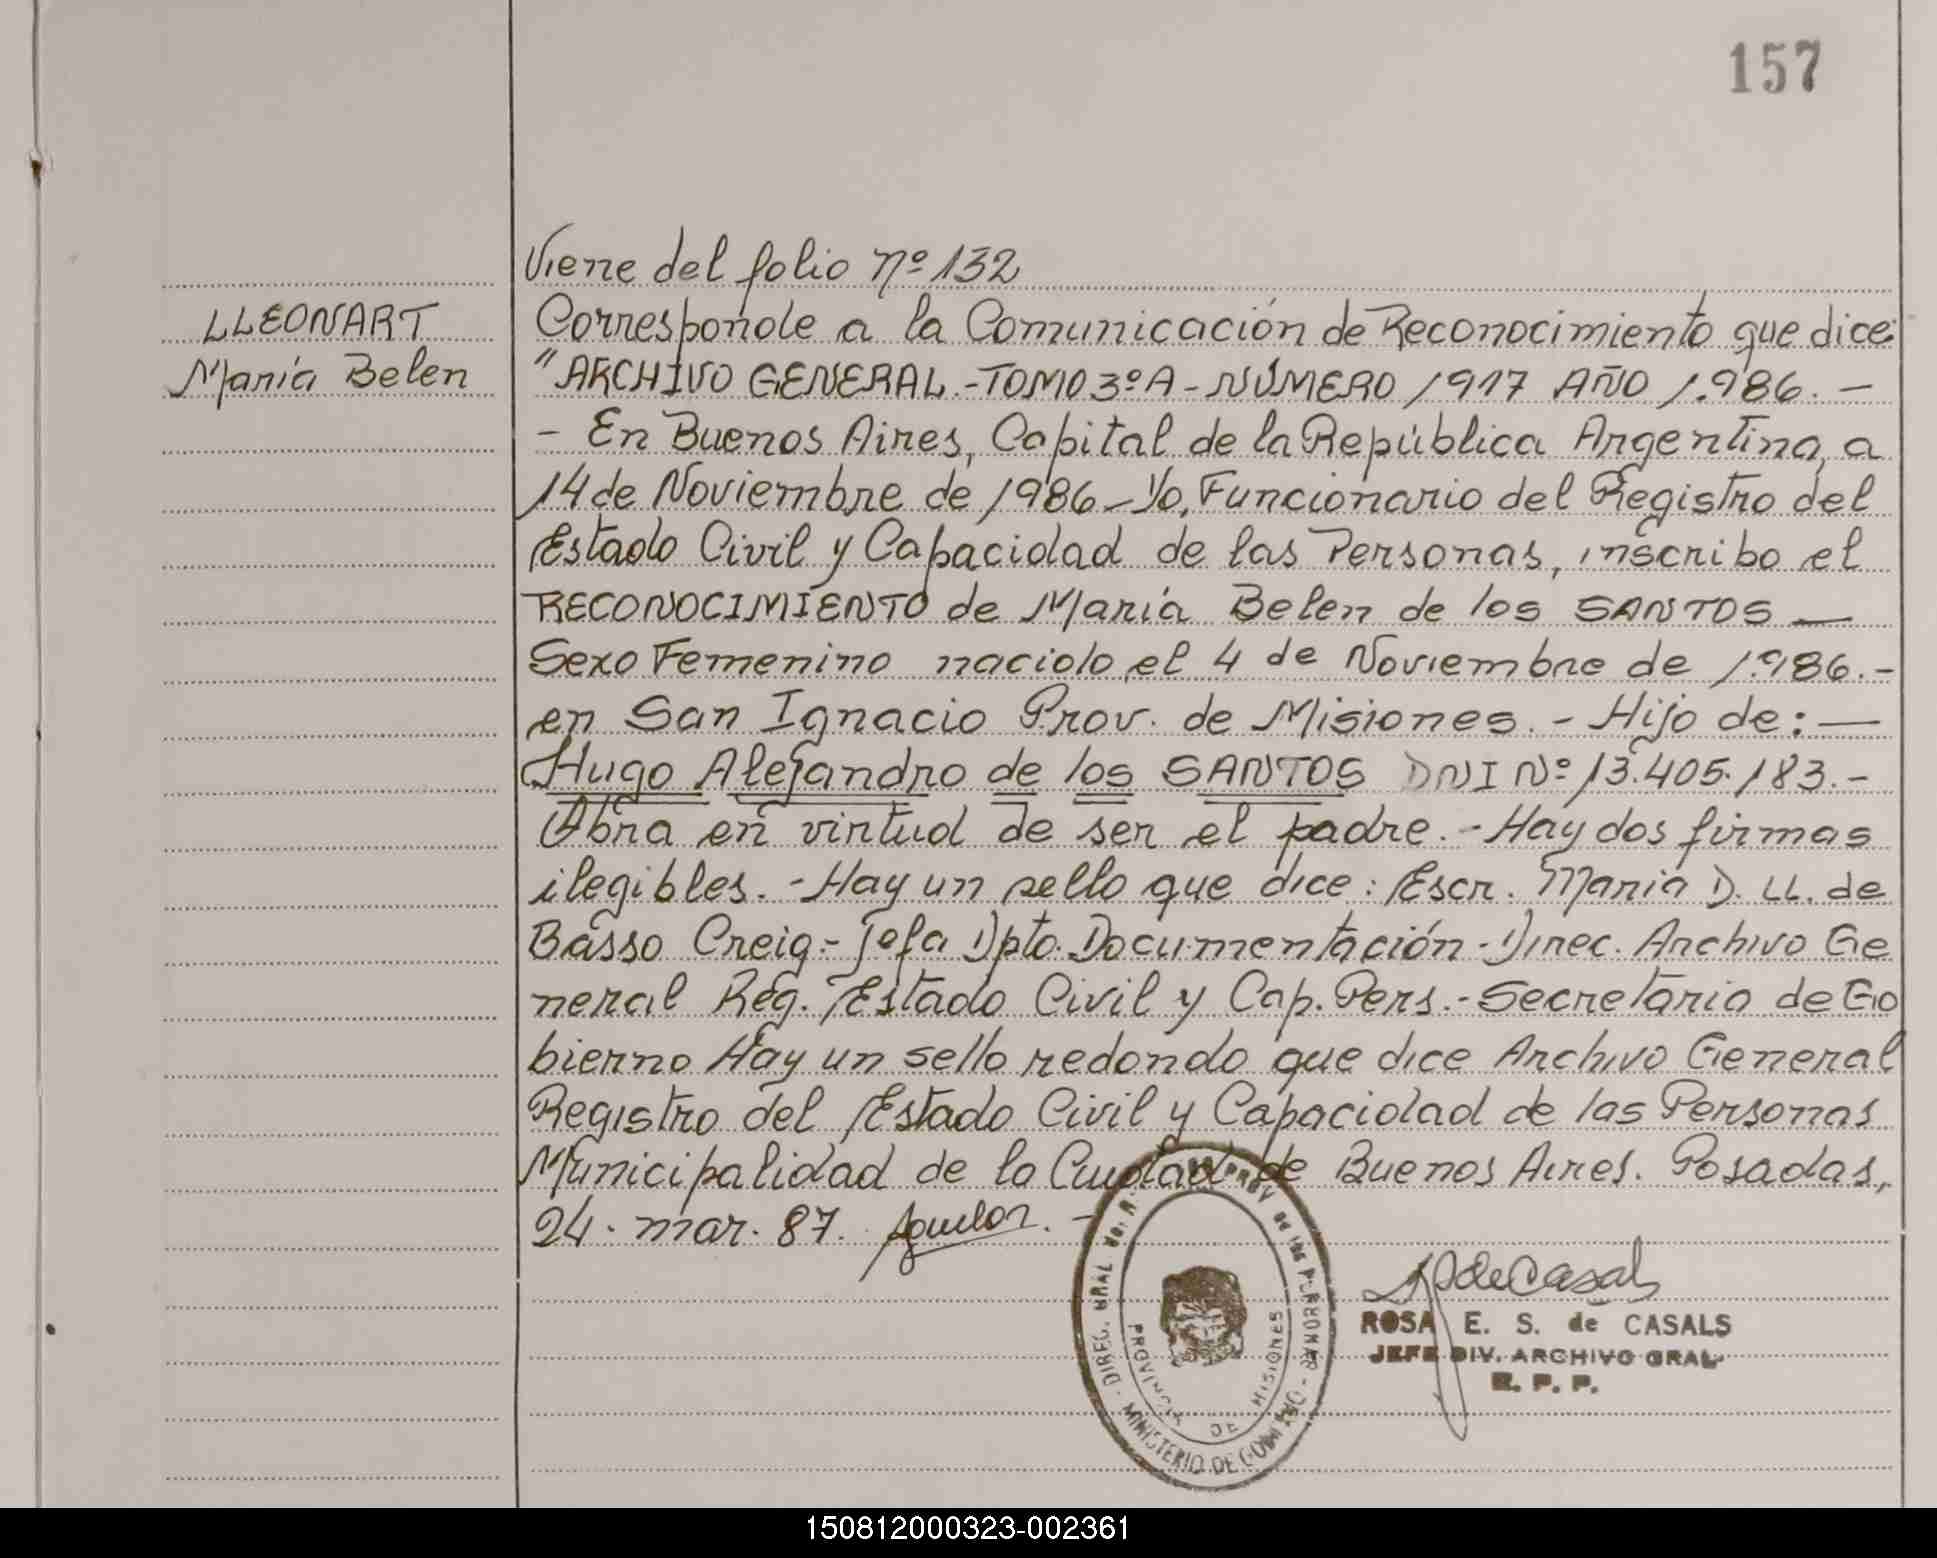 157
Viene del folio nº 132
LLEONART
María Belen
Corresponde a la Comunicación de Reconocimiento que dice:
"ARCHIVO GENERAL.-TOMO 3º A - NÚMERO 1917 AÑO 1.986. -
- En Buenos Aires, Capital de la República Argentina, a
14 de Noviembre de 1986 - Yo, Funcionario del Registro del
Estado Civil y Capacidad de las Personas, inscribo el
RECONOCIMIENTO de María Belen de los SANTOS —
Sexo Femenino nacido el 4 de Noviembre de 1.986. -
en San Ignacio Prov. de Misiones. - Hijo de: —
Hugo Alejandro de los SANTOS DNI Nº 13.405.183. -
Obra en virtud de ser el padre. - Hay dos firmas
ilegibles. - Hay un sello que dice: Escr. María D. LL. de
Basso Creig - Jefa Dpto. Documentación - Direc. Archivo Ge
neral Reg. Estado Civil y Cap. Pers. - Secretaria de Go
bierno Hay un sello redondo que dice Archivo General
Registro del Estado Civil y Capacidad de las Personas
Municipalidad de la Ciudad de Buenos Aires. Posadas,
24. mar. 87.
DIREC. GRAL PROV de las PERSONAS
PROVINCIA DE MISIONES
MINISTERIO DE GOBIERNO
ROSA E. S. de CASALS
JEFE DIV. ARCHIVO GRAL
R. P. P.
150812000323-002361